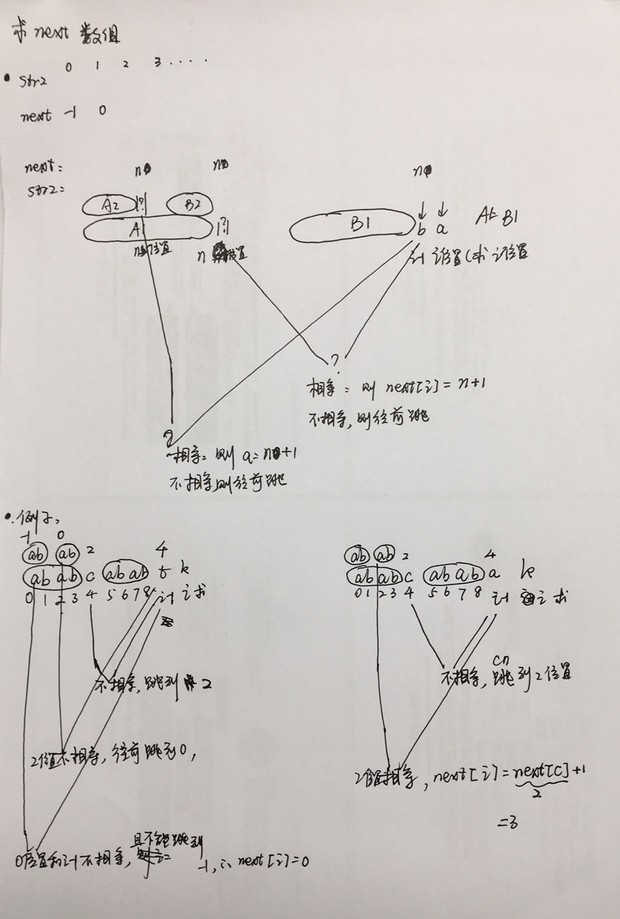 求 next 数组
0 1 2 3 ....
str2
next -1 0
next:
str2:
A2 B2
A B1 b a A与B1
n位置 n i-1 i位置(求i位置
?
相等: 则 next[i] = n+1
不相等, 则往前跳
?
相等: 则 a=n+1
不相等则往前跳
例子:
-1 0
ab ab 2 4
ab ab c ab ab t k
0 1 2 3 4 5 6 7 8 i-1 i求
不相等, 跳到 2
2位置不相等, 往前跳到0,
0位置和i-1不相等, 且不能跳到
-1, ∴ next[i]=0
ab ab 2 4
ab ab c ab ab a k
0 1 2 3 4 5 6 7 8 i-1 i求
cn
不相等, 跳到2位置
2位置相等, next[i] = next[c]+1
2
=3